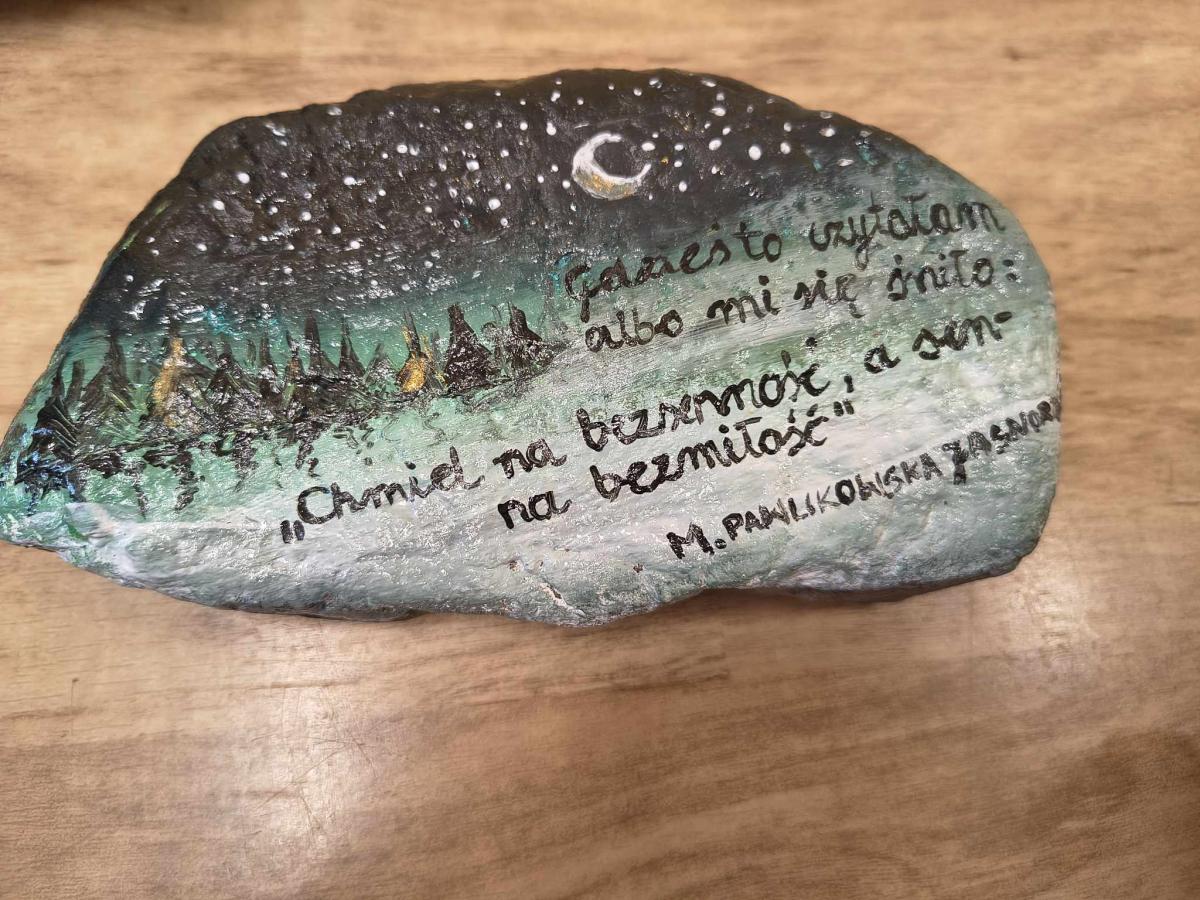 Gdzieś to czytałam
albo mi się śniło:
„Chmiel na bezsenność, a sen-
na bezmiłość"
M. PAWLIKOWSKA JASNORZ